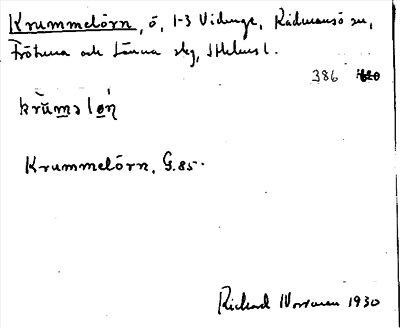 Krummelörn, ö, 1-3 Vidinge, Rådmansö sn,
Frötuna och Länna skg, Sthlms l.
386
krŭməløṇ
Krummelörn, G.85.
Rickard 1930